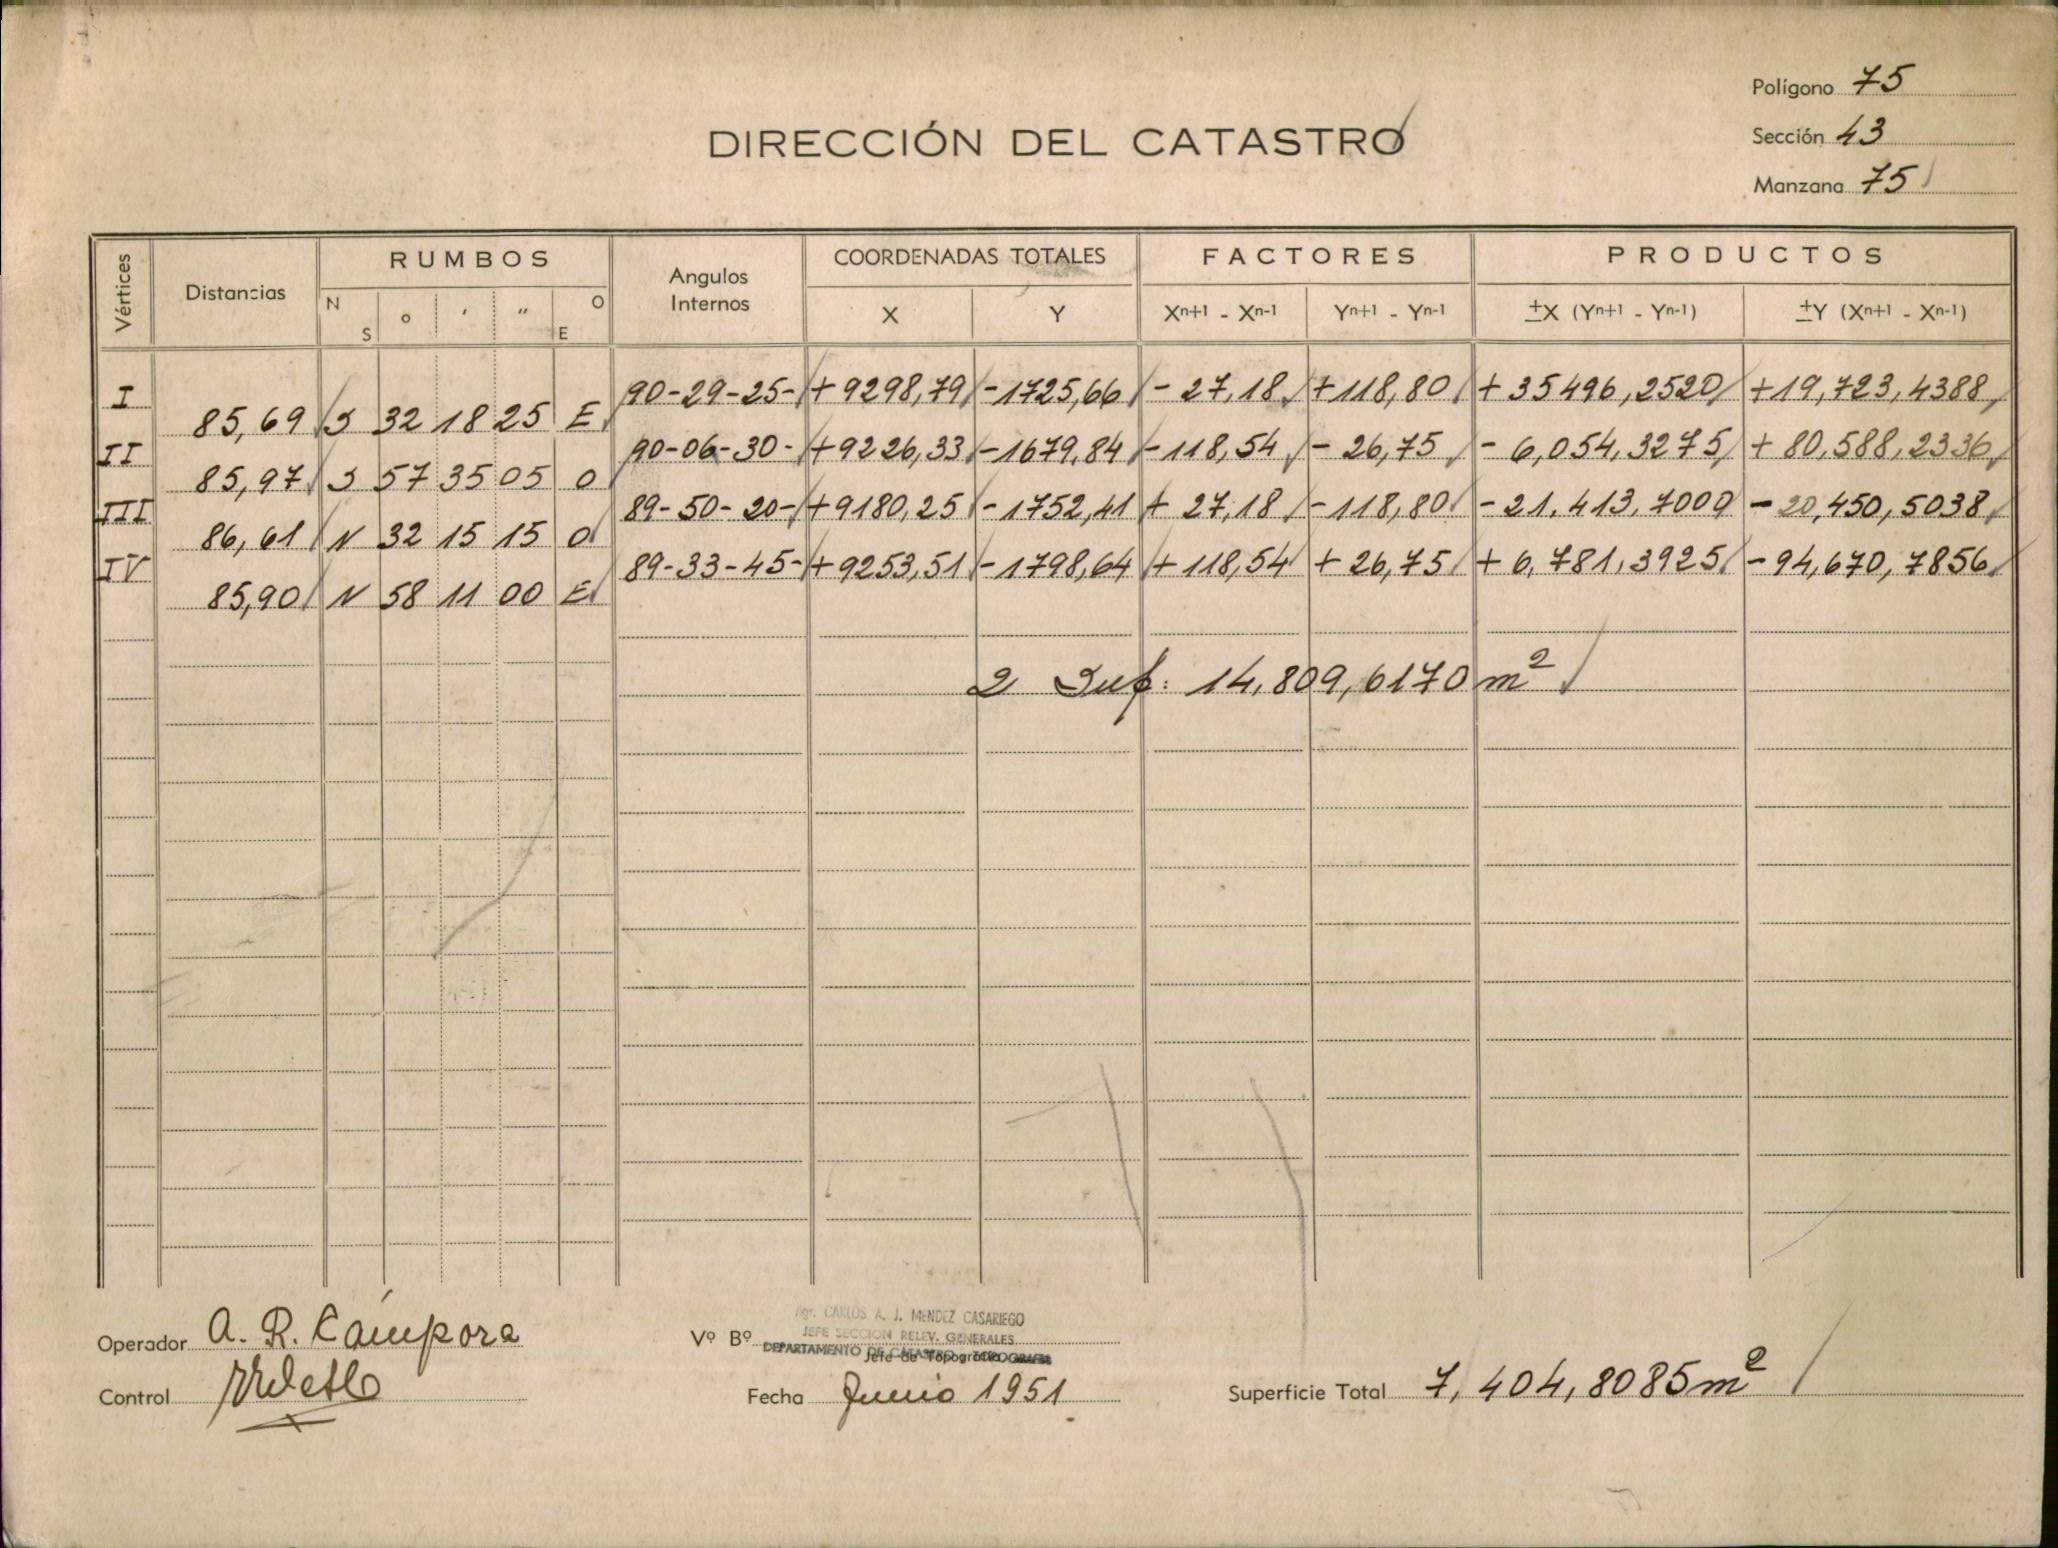 Polígono 75
DIRECCIÓN DEL CATASTRO
Sección 43
Manzana 75
Vértices Distancias RUMBOS Angulos Internos COORDENADAS TOTALES FACTORES PRODUCTOS
N S o ' " O E X Y Xn+1 - Xn-1 Yn+1 - Yn-1 ±X (Yn+1 - Yn-1) ±Y (Xn+1 - Xn-1)
I 90-29-25- +9298,79 -1725,66 - 27,18 +118,80 + 35496,2520 +19,723,4388
85,69 S 32 18 25 E
II 90-06-30- +9226,33 -1679,84 -118,54 - 26,75 - 6,054,3275 + 80,588,2336
85,97 S 57 35 05 O
III 89-50-20- +9180,25 -1752,41 + 27,18 -118,80 -21.413,7000 -20,450,5038
86,61 N 32 15 15 O
IV 89-33-45- +9253,51 -1798,64 +118,54 + 26,75 + 6,781,3925 -94,670,7856
85,90 N 58 11 00 E
2 Sup: 14,809,6170 m²
Operador A. R. Cámpora
Vº Bº
Agr. CARLOS A. J. MENDEZ CASARIEGO
JEFE SECCION RELEV. GENERALES
DEPARTAMENTO DE CATASTRO
Jefe de Topografía
Control
Fecha Junio 1951
Superficie Total 7,404,8085 m²